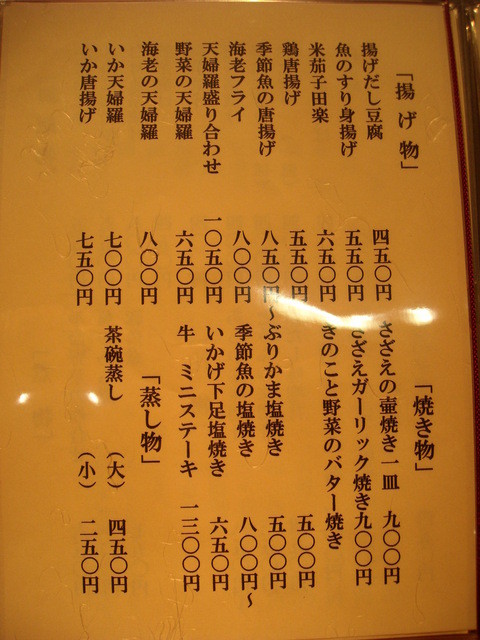 「揚げ物」
揚げだし豆腐 四五〇円
魚のすり身揚げ 五五〇円
米茄子田楽 六五〇円
鶏唐揚げ 五五〇円
季節魚の唐揚げ 八五〇円〜
海老フライ 八〇〇円
天婦羅盛り合わせ 一〇五〇円
野菜の天婦羅 六五〇円
海老の天婦羅 八〇〇円
いか天婦羅 七〇〇円
いか唐揚げ 七五〇円
「焼き物」
さざえの壷焼き一皿 九〇〇円
さざえガーリック焼き九〇〇円
きのこと野菜のバター焼き 五〇〇円
ぶりかま塩焼き 五〇〇円
季節魚の塩焼き 八〇〇円〜
いかげ下足塩焼き 六五〇円
牛 ミニステーキ 一三〇〇円
「蒸し物」
茶碗蒸し (大) 四五〇円
(小) 二五〇円